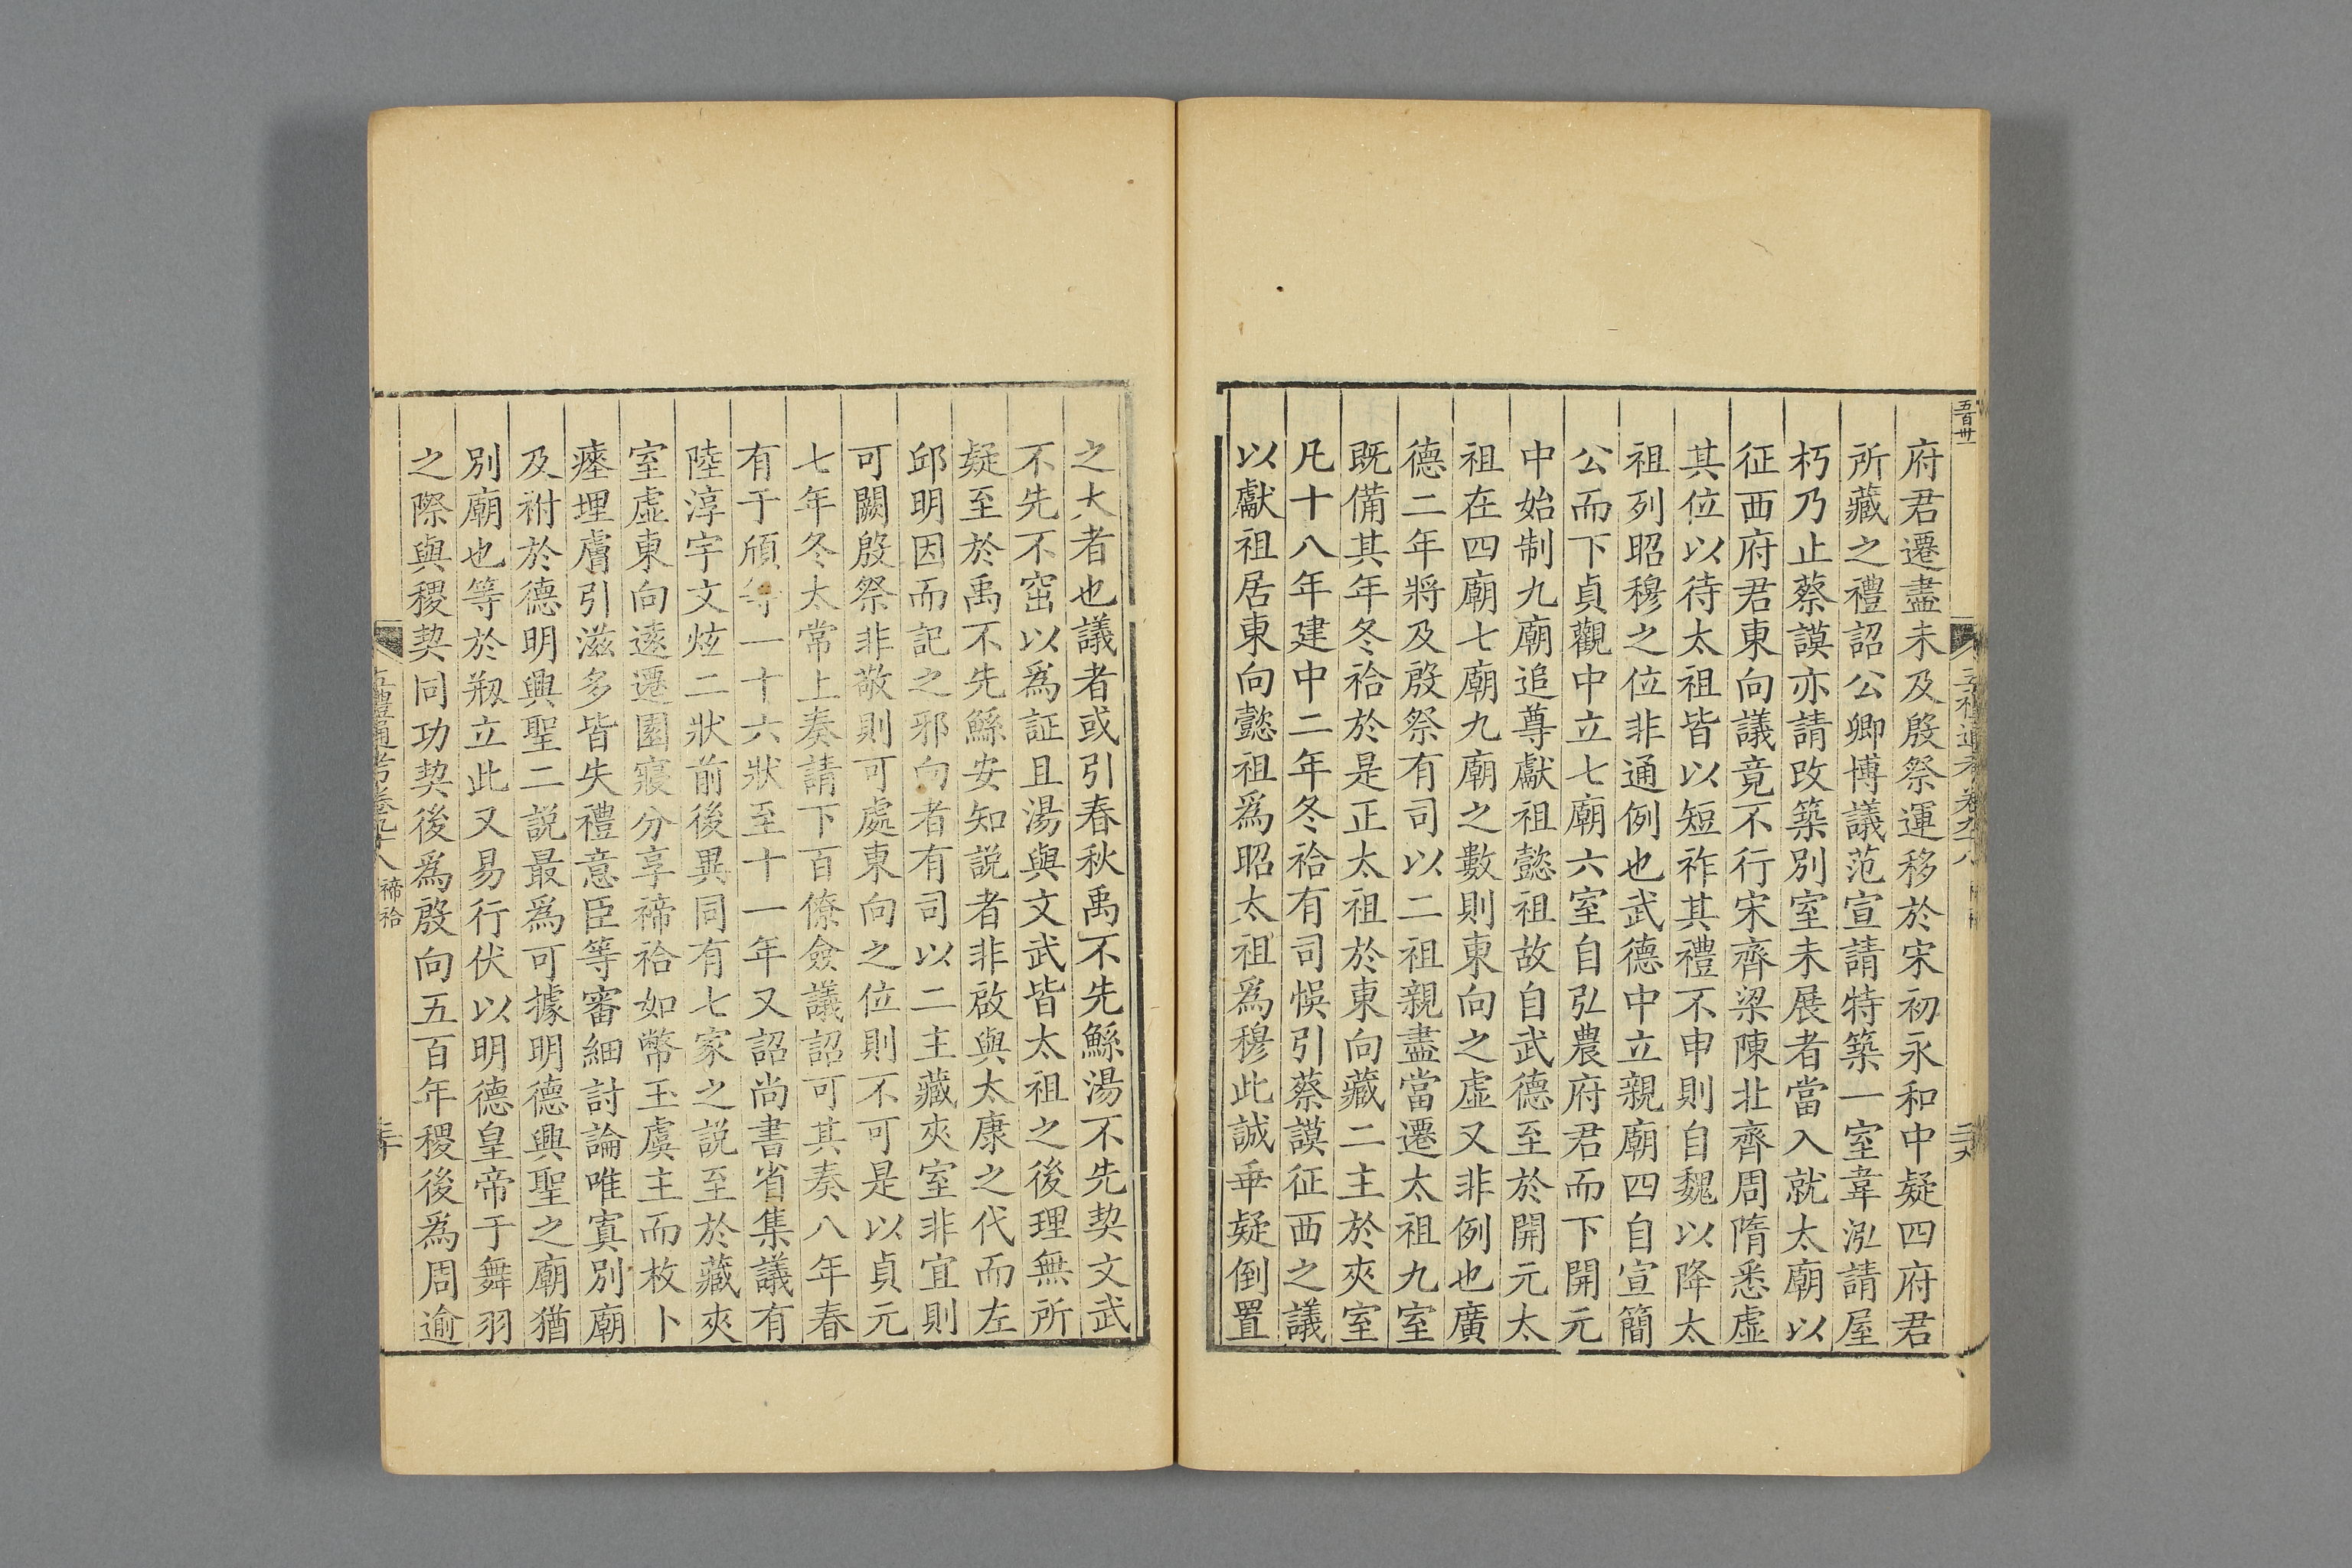 五百卅一
府君遷盡未及殷祭運移於宋初永和中疑四府君
所藏之禮詔公卿博議范宣請特築一室韋泓請屋
朽乃止蔡謨亦請改築別室未展者當入就太廟以
征西府君東向議竟不行宋齊梁陳北齊周隋悉虛
其位以待太祖皆以短祚其禮不申則自魏以降太
祖列昭穆之位非通例也武德中立親廟四自宣簡
公而下貞觀中立七廟六室自弘農府君而下開元
中始制九廟追尊獻祖懿祖故自武德至於開元太
祖在四廟七廟九廟之數則東向之虛又非例也廣
德二年將及殷祭有司以二祖親盡當遷太祖九室
既備其年冬祫於是正太祖於東向藏二主於夾室
凡十八年建中二年冬祫有司悞引蔡謨征西之議
以獻祖居東向懿祖爲昭太祖爲穆此誠乖疑倒置
之大者也議者或引春秋禹不先鯀湯不先契文武
不先不窋以爲証且湯與文武皆太祖之後理無所
疑至於禹不先鯀安知説者非啟與太康之代而左
邱明因而記之邪向者有司以二主藏夾室非宜則
可闕殷祭非敬則可處東向之位則不可是以貞元
七年冬太常上奏請下百僚僉議詔可其奏八年春
有于頎等一十六狀至十一年又詔尚書省集議有
陸淳宇文炫二狀前後異同有七家之説至於藏夾
室虛東向遠遷園寢分享禘祫如幣玉虞主而枚卜
瘞埋膚引滋多皆失禮意臣等審細討論唯寘別廟
及祔於德明興聖二説最爲可據明德興聖之廟猶
別廟也等於剏立此又易行伏以明德皇帝于舞羽
之際與稷契同功契後爲殷向五百年稷後爲周逾
五禮通考卷九十八 禘祫
三十